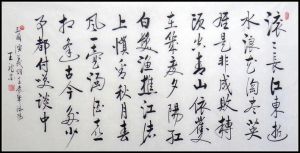 滚滚長江東逝
水浪花淘尽英
雄是非成敗轉
頭空青山依舊
在幾度夕陽紅
白髮漁樵江渚
上慣看秋月春
風一壺濁酒喜
相逢古今多少
事都付笑談中